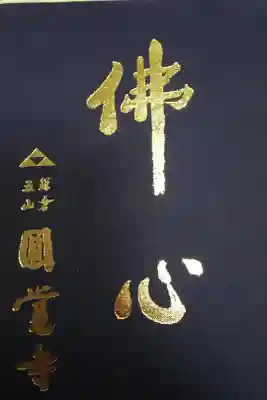 佛心
鎌倉
五山
圓覚寺